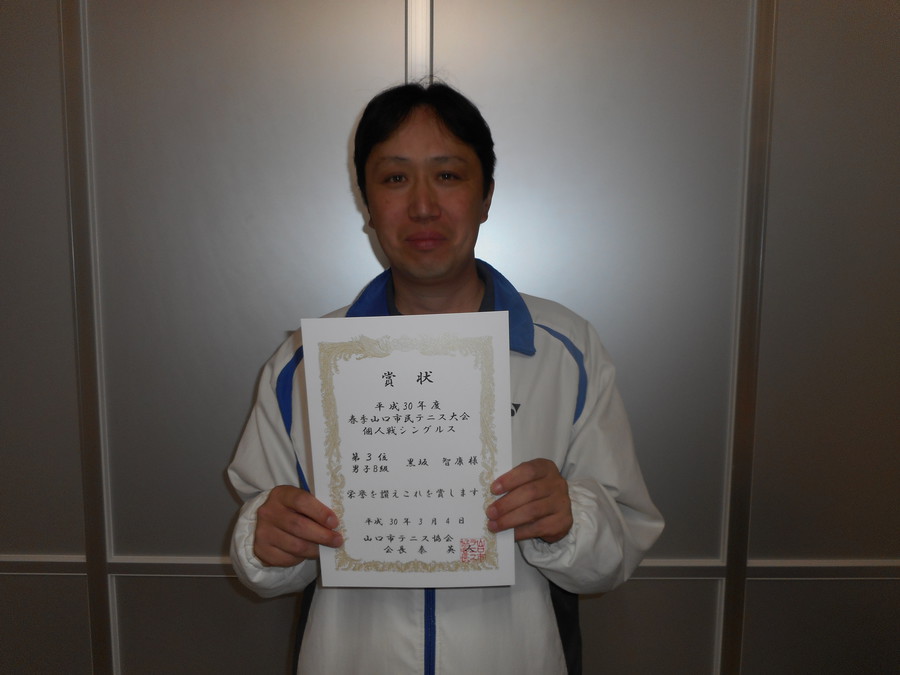 賞状
平成30年度
春季山口市民テニス大会
個人戦シングルス
第3位
男子B級 黒坂 智康様
栄誉を讃えこれを賞します
平成30年3月4日
山口市テニス協会
会長 秦 英